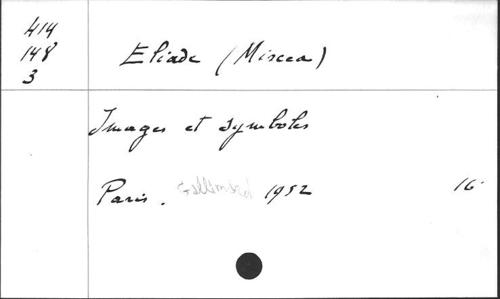 414
148
3
Eliade (Mircea)
Images et symboles
Paris. Gallimard 1952 16